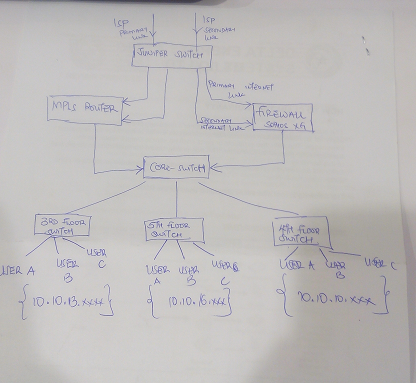 ISP
PRIMARY
LINK
ISP
SECONDARY
LINK
JUNIPER SWITCH
PRIMARY INTERNET
LINK
MPLS ROUTER
FIREWALL
SOPHOS XG
SECONDARY
INTERNET LINK
CORE-SWITCH
3RD FLOOR
SWITCH
5TH FLOOR
SWITCH
4TH FLOOR
SWITCH
USER A
USER
B
USER
C
USER
A
USER
B
USER
C
USER A
USER
B
USER C
10.10.13.xxxx
10.10.15.xxx
10.10.10.xxx